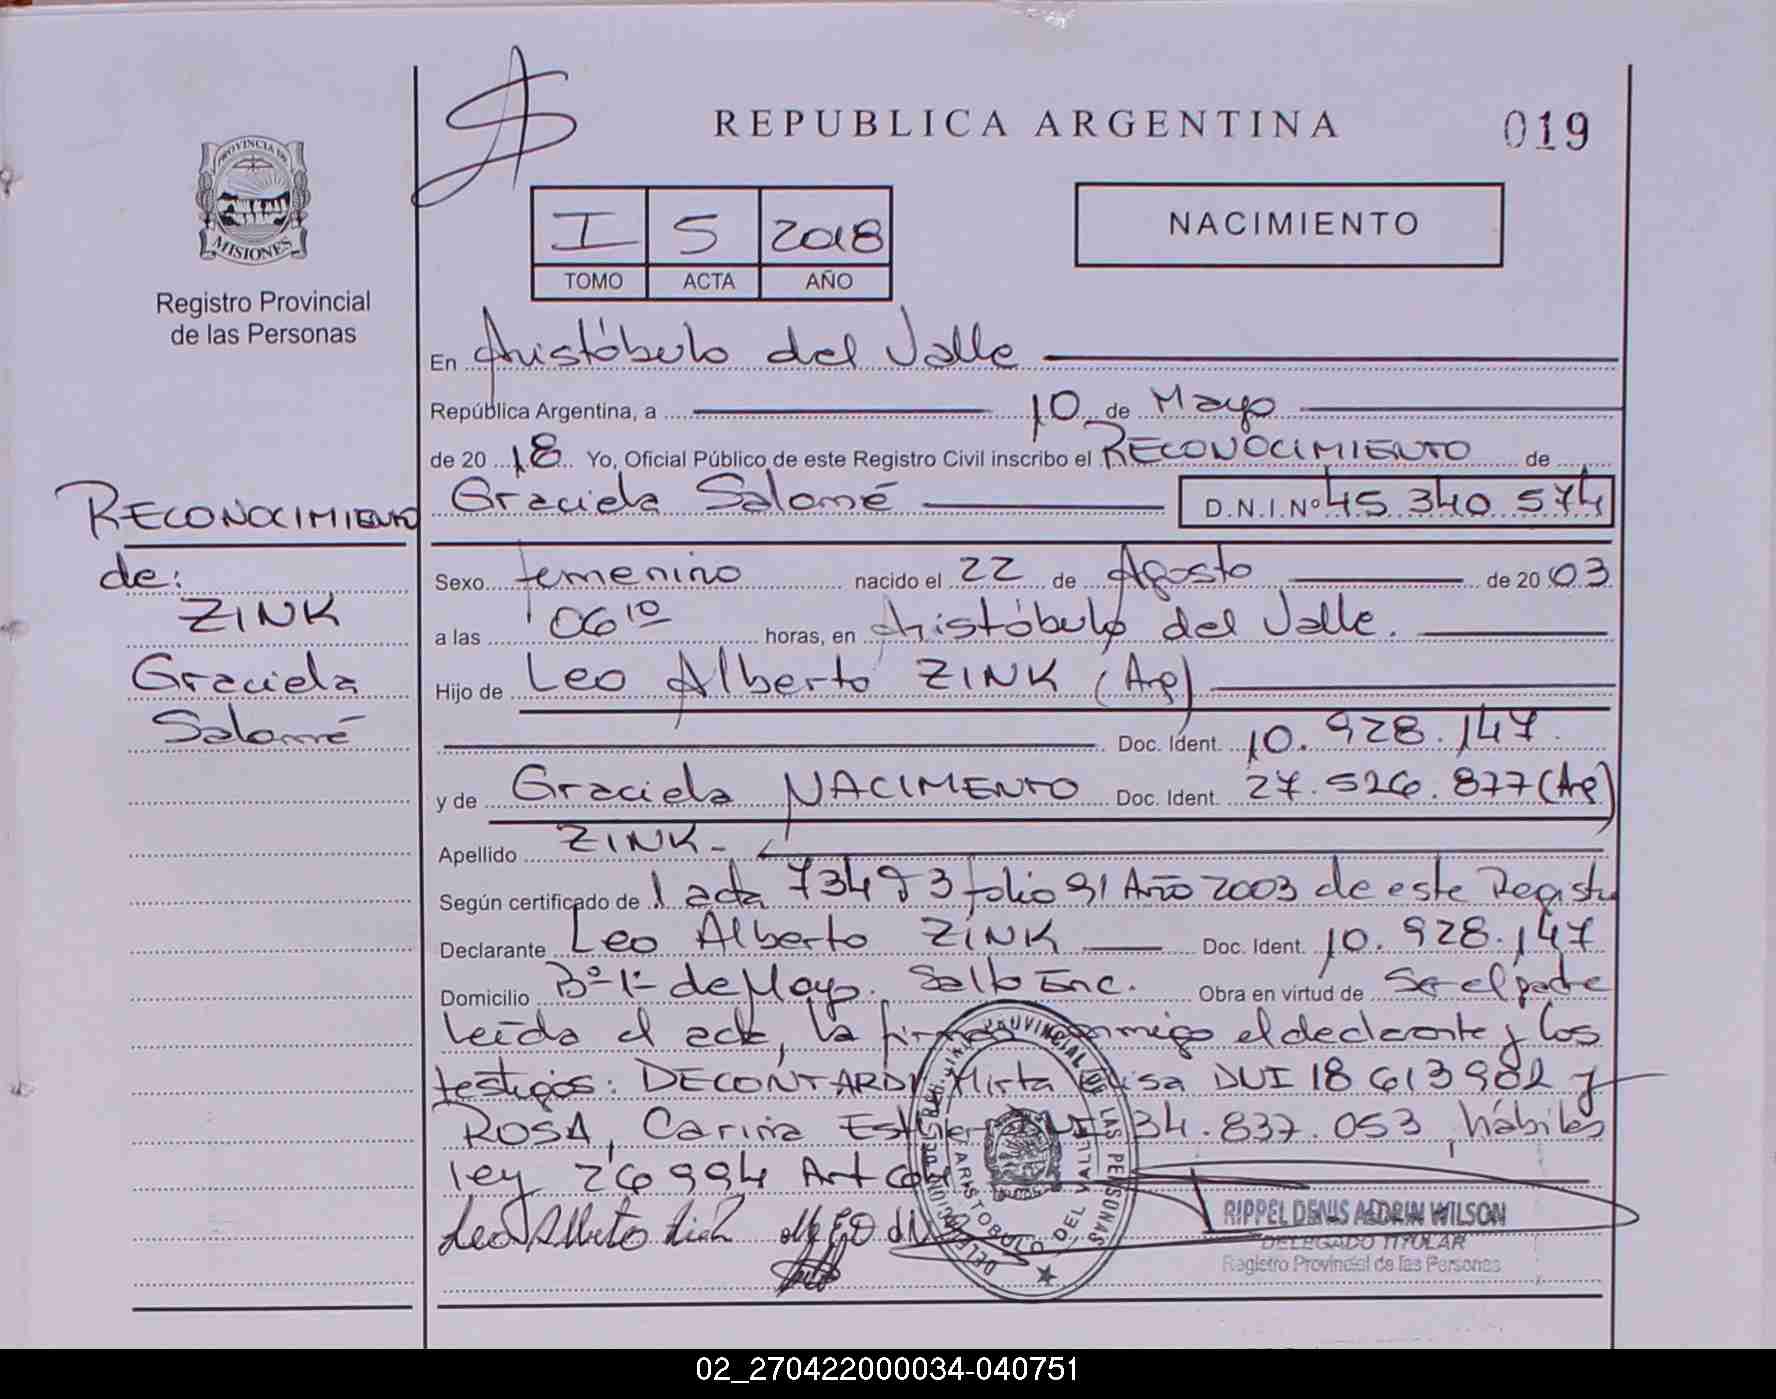 REPUBLICA ARGENTINA
019
PROVINCIA DE
MISIONES
Registro Provincial
de las Personas
I 5 2018
TOMO ACTA AÑO
NACIMIENTO
En Aristóbulo del Valle
República Argentina, a 10 de Mayo
de 20 18 Yo, Oficial Público de este Registro Civil inscribo el RECONOCIMIENTO de
Graciela Salomé D.N.I.Nº 45 340 574
RECONOCIMIENTO
de:
ZINK
Graciela
Salomé
Sexo femenino nacido el 22 de Agosto de 20 03
a las 06 10 horas, en Aristóbulo del Valle.
Hijo de Leo Alberto ZINK (Arg)
Doc. Ident. 10.928.147
y de Graciela NACIMENTO Doc. Ident. 27.526.877 (Arg)
Apellido ZINK -
Según certificado de 1 acta 73493 folio 91 Año 2003 de este Registro
Declarante Leo Alberto ZINK Doc. Ident. 10.928.147
Domicilio Bº 1º de Mayo. Salto Enc. Obra en virtud de Ser el padre
leída el acta, la firman conmigo el declarante y los
testigos: DECONTARDI Mirta DNI 18 613 982 y
ROSA, Carina Esther DNI 34.837.053, hábiles
ley 26994 Art
Leo Alberto
RIPPEL DENIS ALDRIN WILSON
DELEGADO TITULAR
Registro Provincial de las Personas
PROVINCIAL DE LAS PERSONAS
ARISTOBULO DEL VALLE
02_270422000034-040751